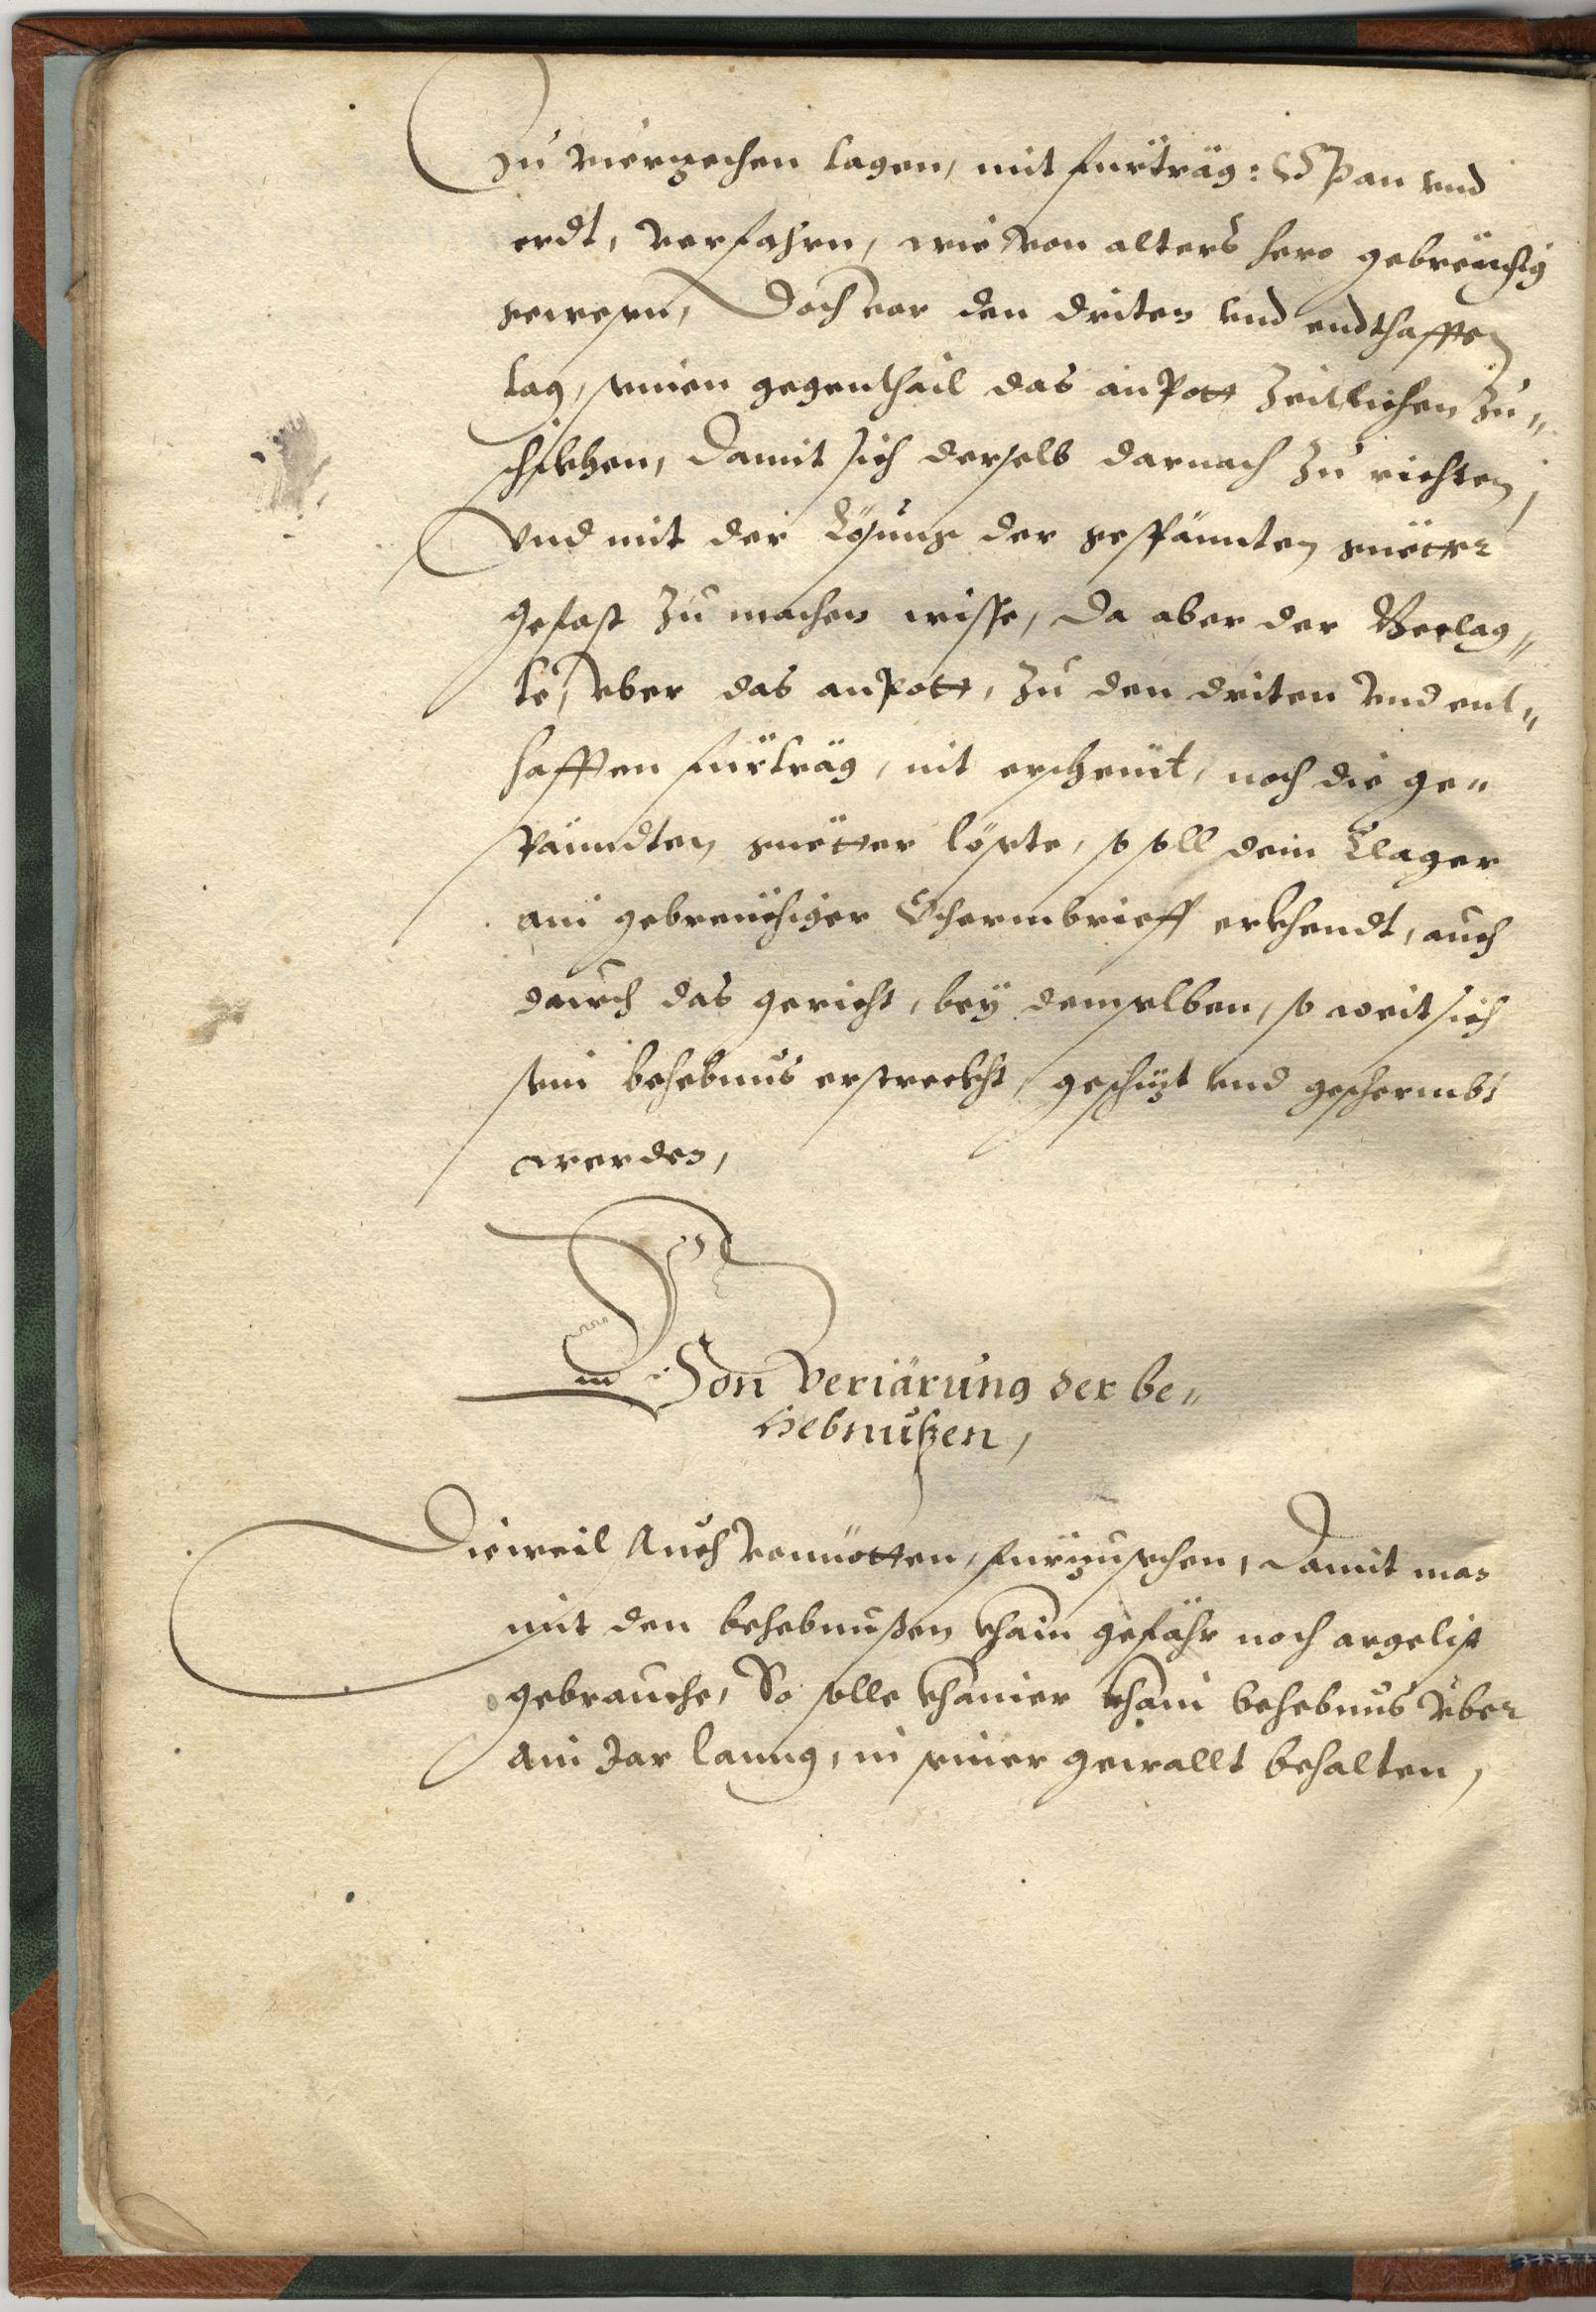 Zu vierzechen tagen, mit fürträg: Span vnd
erdt, verfahrn, wie von alters hero gebreüchig
gewesen, Doch vor den driten vnd endthafften
tag, seinen gegenthail das anPott Zeitlichen Zu„
schikhen, Damit sich derselb darnach zu richten,
Vnd mit der Lösung der gepfänndten guëtter
gefast zu machen wisse, Da aber der Beclag„
te, vber das anPott, zu den driten vnd ent„
hafften fürträg, nit erscheint, noch die ge„
Pfänndten guëtter löste, so soll dem Clager
ain gebreüchiger Schermbrieff erkhendt, auch
durch das gericht, bey demselben, so weit sich
sein behebnus erstreckht, geschüzt vnd geschermbt
werden,
Von Veriärung der be„
hebnußen,
Dieweil Auch vonnötten, fürzusehen, Damit man
mit den behebnußen khain gefähr noch argelist
gebrauche, So solle khainer khain behebnus vber
ain Jar lanng, in seiner gewallt behalten,